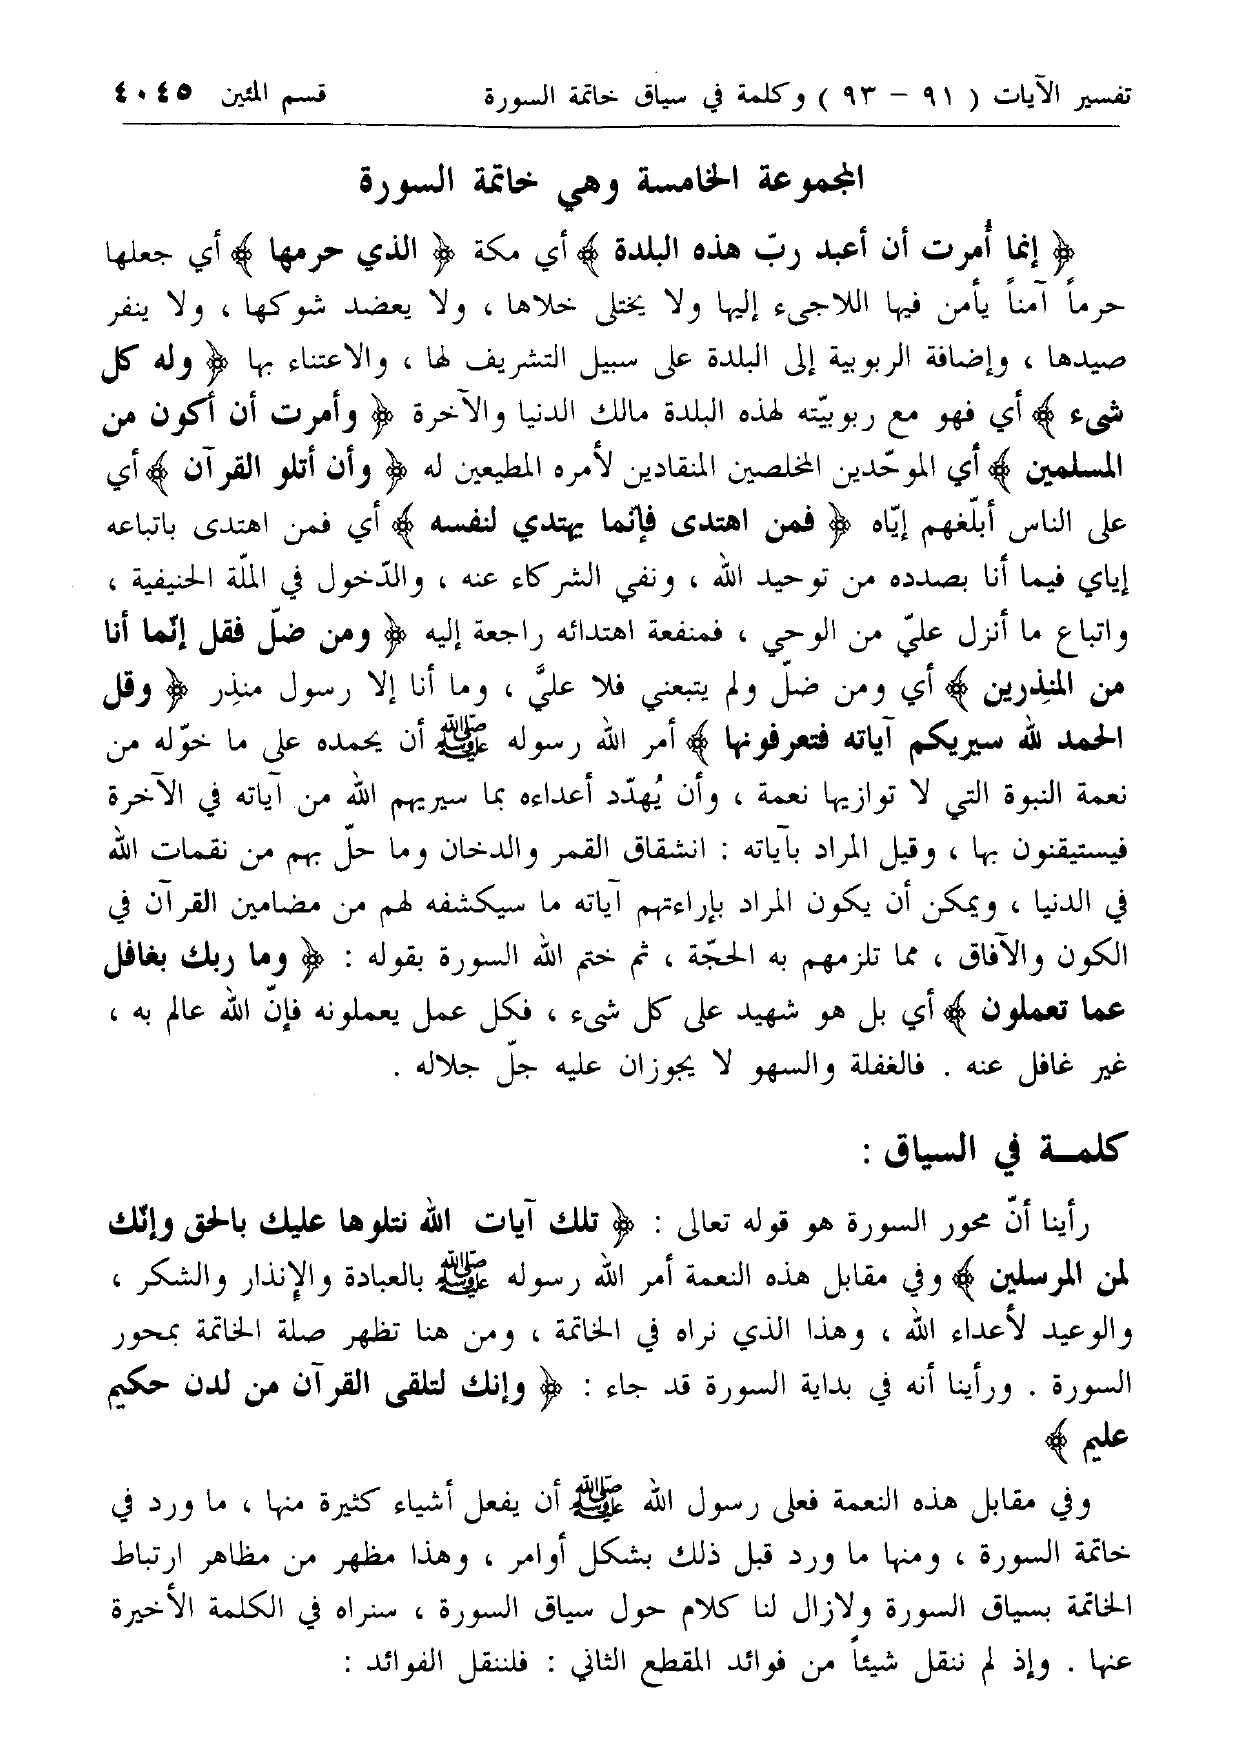 تفسير الآيات ( ٩١ - ٩٣ ) وكلمة في سياق خاتمة السورة قسم المئين ٤٠٤٥
المجموعة الخامسة وهي خاتمة السورة
﴿ إنما أُمرت أن أعبد ربّ هذه البلدة ﴾ أي مكة ﴿ الذي حرمها ﴾ أي جعلها
حرماً آمناً يأمن فيها اللاجىء إليها ولا يختلى خلاها ، ولا يعضد شوكها ، ولا ينفر
صيدها ، وإضافة الربوبية إلى البلدة على سبيل التشريف لها ، والاعتناء بها ﴿ وله كل
شىء ﴾ أي فهو مع ربوبيّته لهذه البلدة مالك الدنيا والآخرة ﴿ وأمرت أن أكون من
المسلمين ﴾ أي الموحّدين المخلصين المنقادين لأمره المطيعين له ﴿ وأن أتلو القرآن ﴾ أي
على الناس أبلّغهم إيّاه ﴿ فمن اهتدى فإنما يهتدي لنفسه ﴾ أي فمن اهتدى باتباعه
إياي فيما أنا بصدده من توحيد الله ، ونفي الشركاء عنه ، والدّخول في الملّة الحنيفية ،
واتباع ما أنزل عليّ من الوحي ، فمنفعة اهتدائه راجعة إليه ﴿ ومن ضلّ فقل إنّما أنا
من المنذِرين ﴾ أي ومن ضلّ ولم يتبعني فلا عليَّ ، وما أنا إلا رسول منذِر ﴿ وقل
الحمد لله سيريكم آياته فتعرفونها ﴾ أمر الله رسوله ﷺ أن يحمده على ما خوّله من
نعمة النبوة التي لا توازيها نعمة ، وأن يُهدّد أعداءه بما سيريهم الله من آياته في الآخرة
فيستيقنون بها ، وقيل المراد بآياته : انشقاق القمر والدخان وما حلّ بهم من نقمات الله
في الدنيا ، ويمكن أن يكون المراد بإراءتهم آياته ما سيكشفه لهم من مضامين القرآن في
الكون والآفاق ، مما تلزمهم به الحجّة ، ثم ختم الله السورة بقوله : ﴿ وما ربك بغافل
عما تعملون ﴾ أي بل هو شهيد على كل شىء ، فكل عمل يعملونه فإنّ الله عالم به ،
غير غافل عنه . فالغفلة والسهو لا يجوزان عليه جلّ جلاله .
كلمـة في السياق :
رأينا أنّ محور السورة هو قوله تعالى : ﴿ تلك آيات الله نتلوها عليك بالحق وإنّك
لمن المرسلين ﴾ وفي مقابل هذه النعمة أمر الله رسوله ﷺ بالعبادة والإنذار والشكر ،
والوعيد لأعداء الله ، وهذا الذي نراه في الخاتمة ، ومن هنا تظهر صلة الخاتمة بمحور
السورة . ورأينا أنه في بداية السورة قد جاء : ﴿ وإنك لتلقى القرآن من لدن حكيم
عليم ﴾
وفي مقابل هذه النعمة فعلى رسول الله ﷺ أن يفعل أشياء كثيرة منها ، ما ورد في
خاتمة السورة ، ومنها ما ورد قبل ذلك بشكل أوامر ، وهذا مظهر من مظاهر ارتباط
الخاتمة بسياق السورة ولازال لنا كلام حول سياق السورة ، سنراه في الكلمة الأخيرة
عنها . وإذ لم ننقل شيئاً من فوائد المقطع الثاني : فلننقل الفوائد :